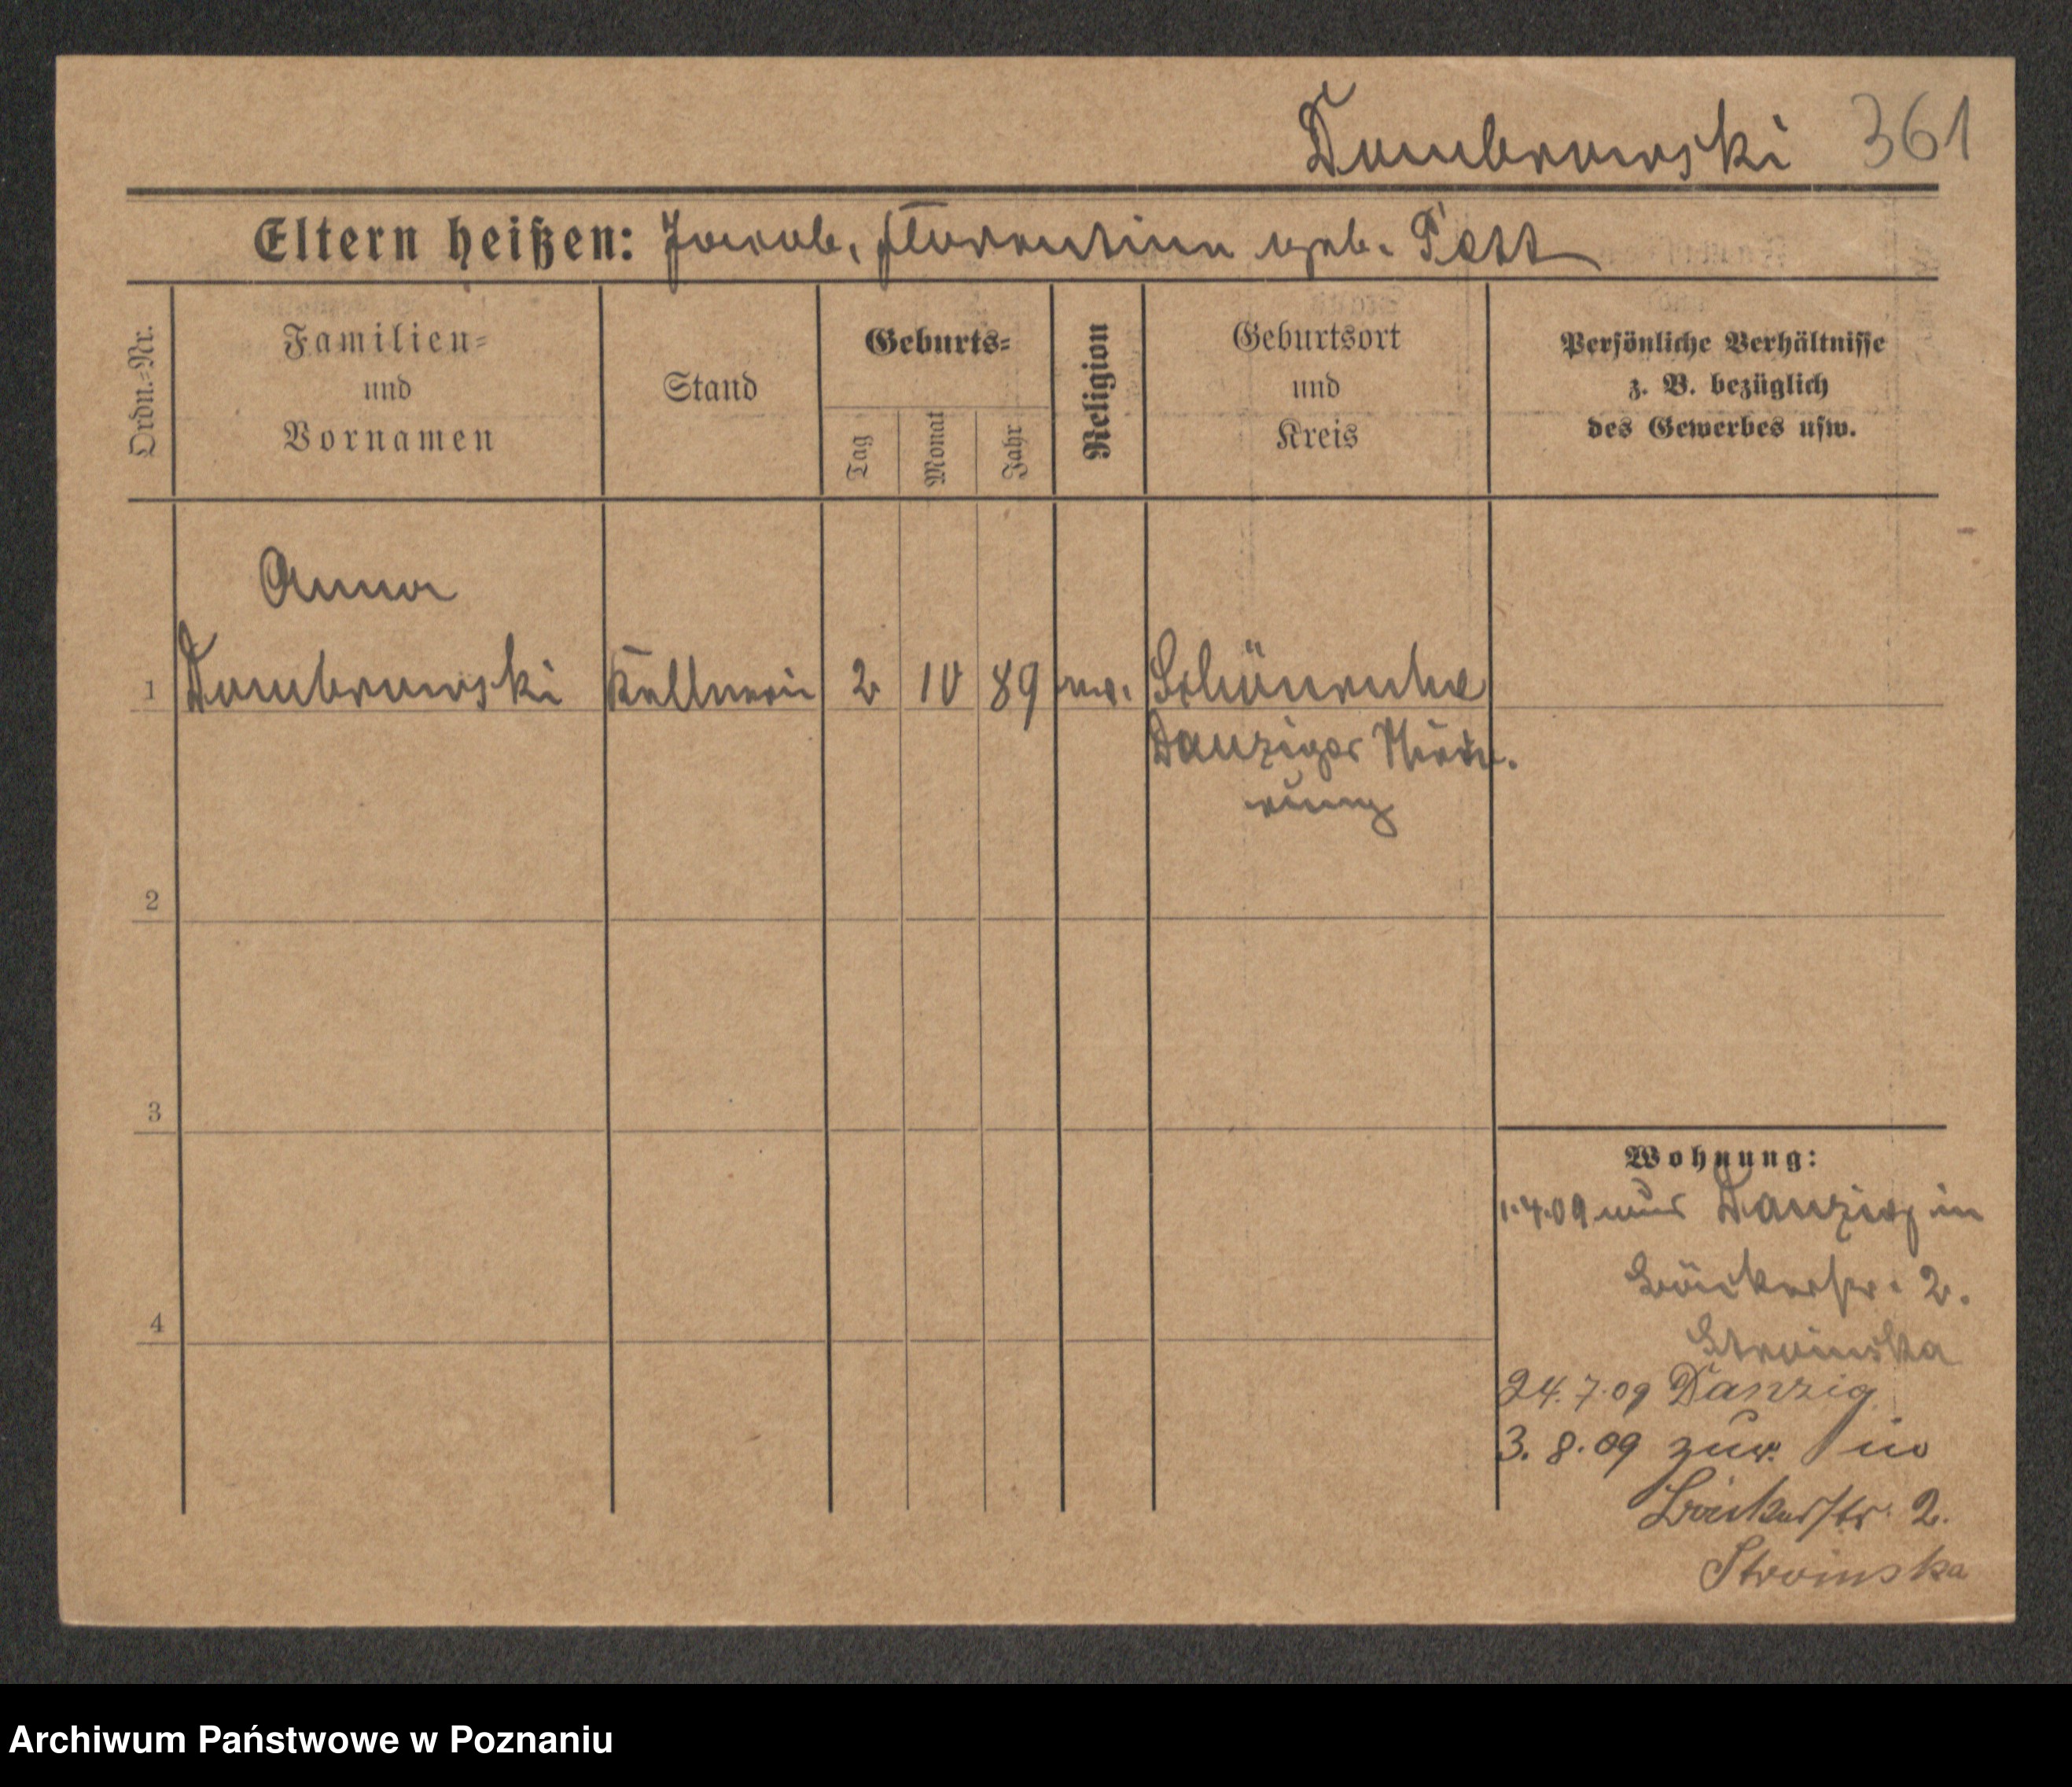 Dombrowski 361
Eltern heißen: Jacob, Florentine geb. Pett
Ordn.-Nr.
Familien-
und
Vornamen
Stand
Geburts-
Tag
Monat
Jahr
Religion
Geburtsort
und
Kreis
Persönliche Verhältnisse
z. B. bezüglich
des Gewerbes usw.
Anna
1 Dombrowski Kellnerin 2 10 89 ev. Schönrohr
Danziger Niede-
rung
2
3
4
Wohnung:
1.4.09 aus Danzig in
Bäckerstr. 2.
Stroinska
24.7.09 Danzig
3.8.09 zur. in
Bäckerstr. 2.
Stroinska
Archiwum Państwowe w Poznaniu